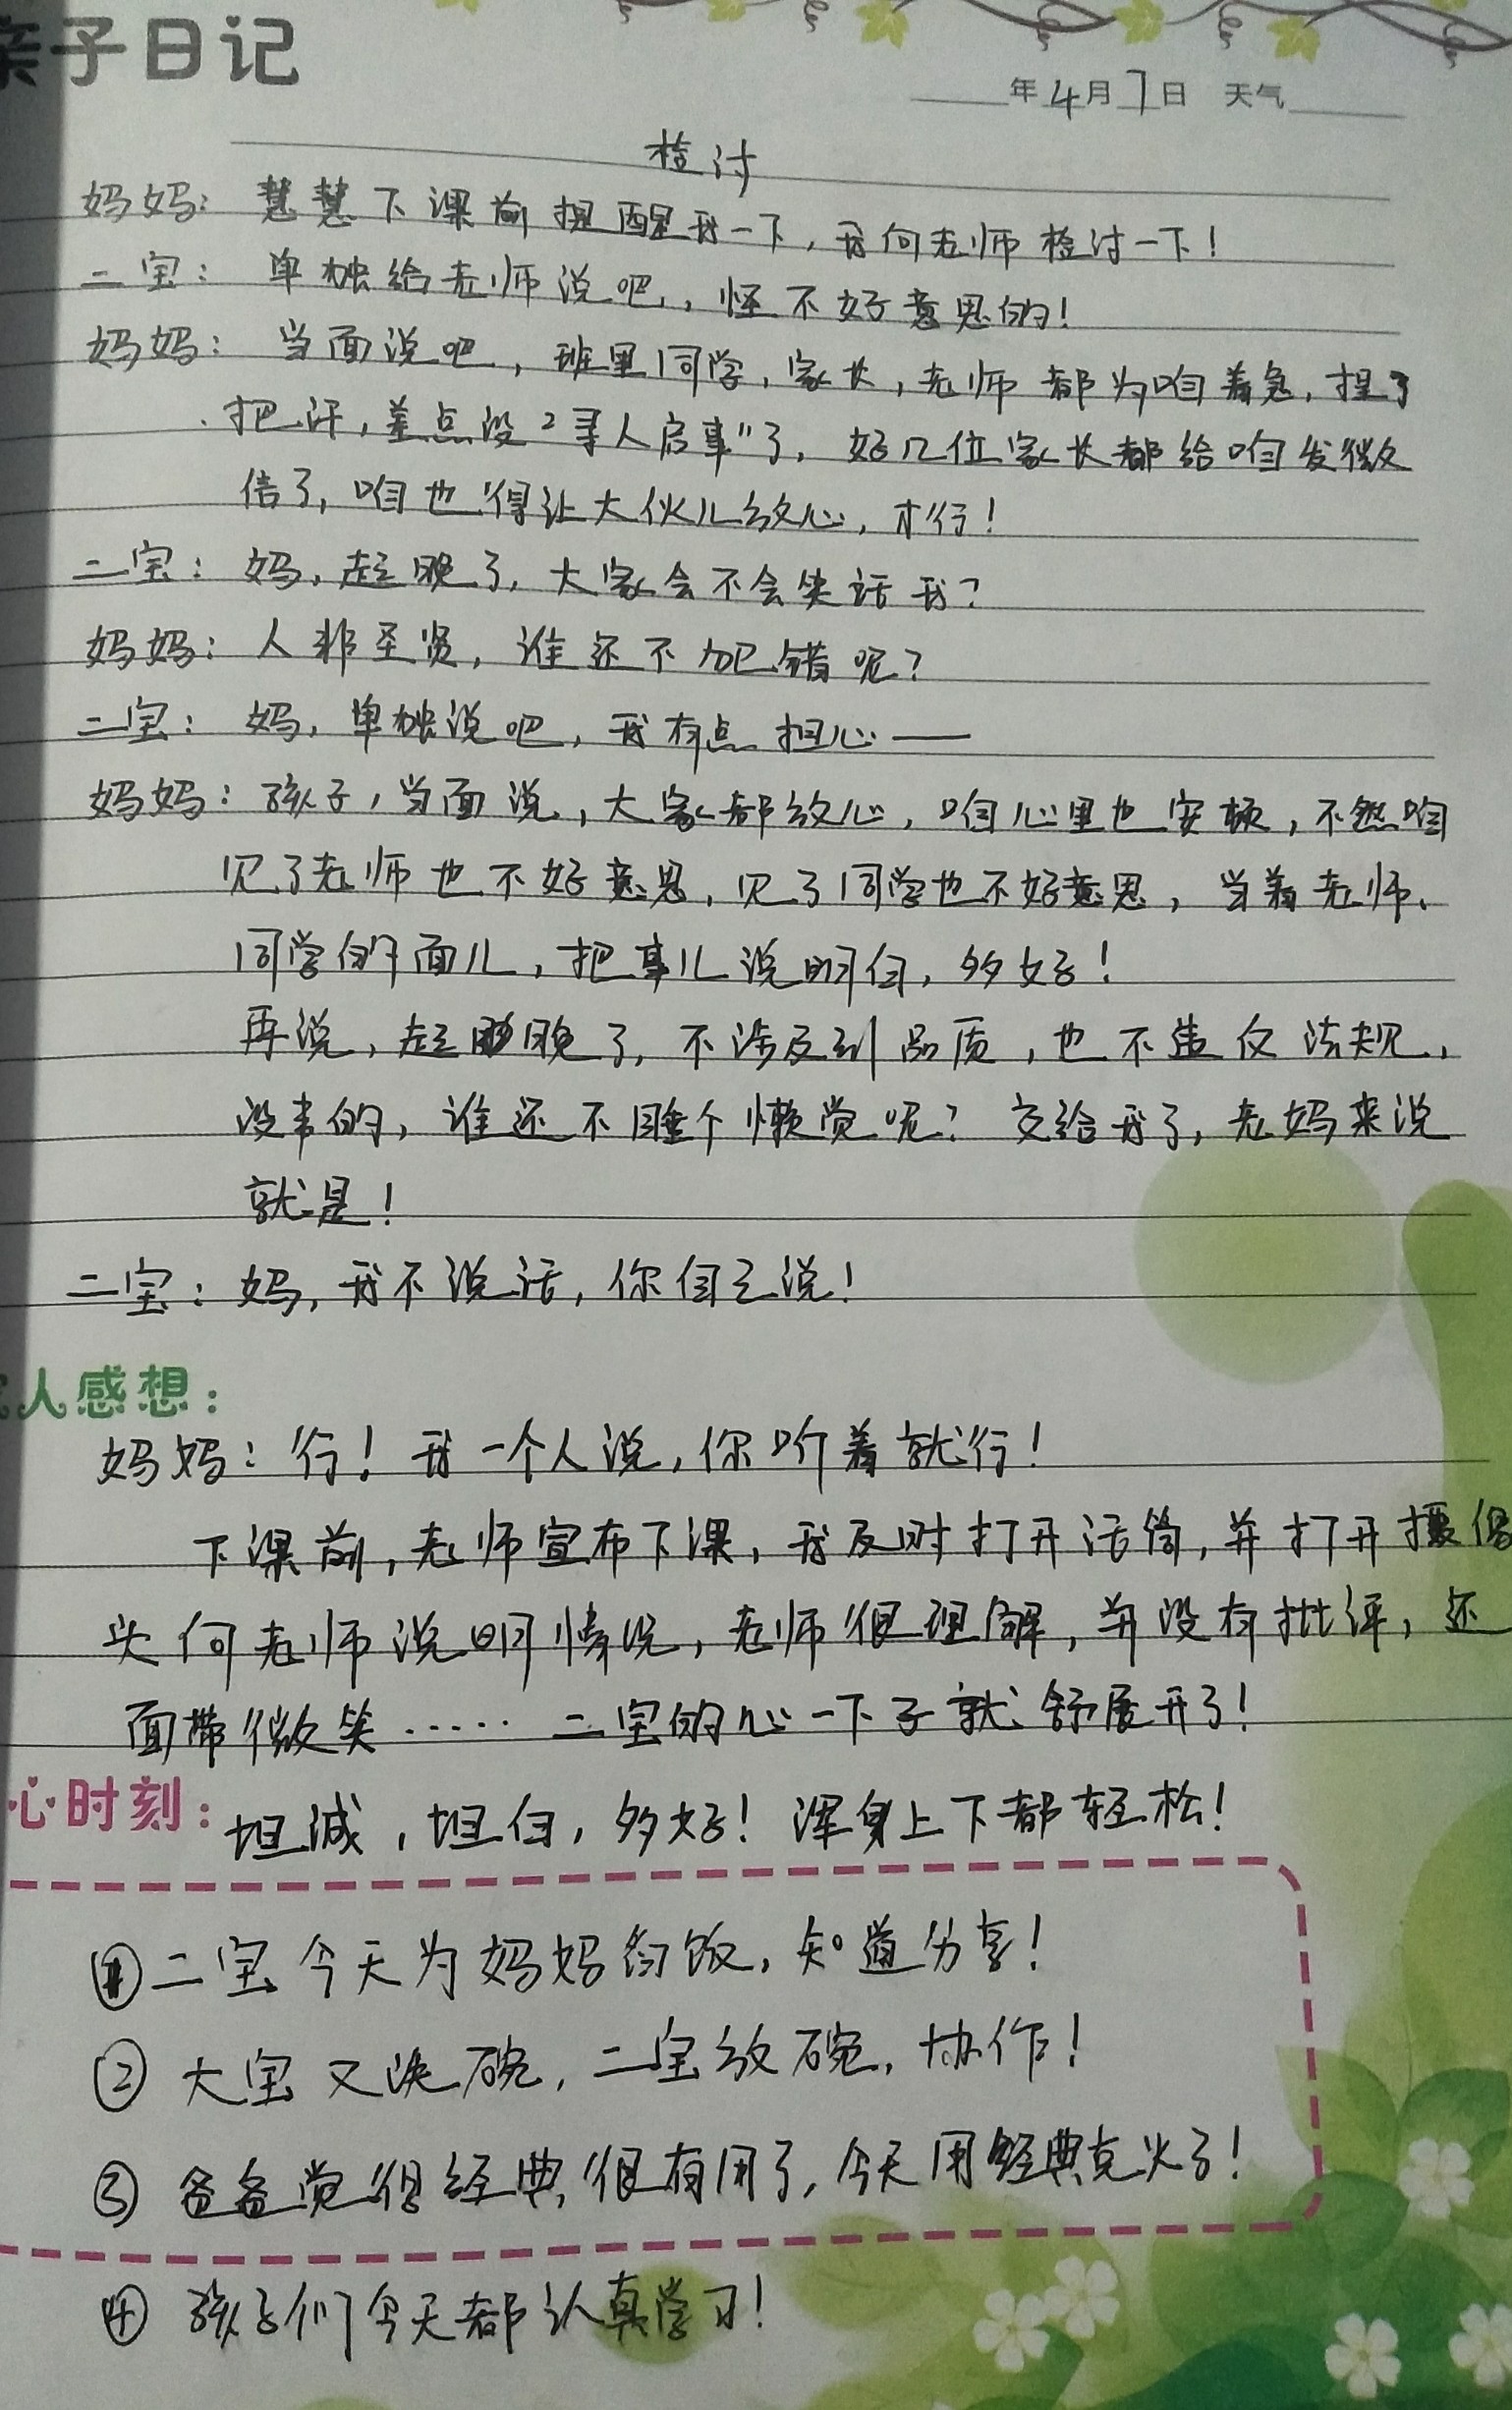 亲子日记
年4月7日 天气
检讨
妈妈：慧慧下课前提醒我一下，我向老师检讨一下！
二宝：单独给老师说吧，，怪不好意思的！
妈妈：当面说吧，班里同学，家长，老师都为咱着急，捏了
把汗，差点没“寻人启事”了，好几位家长都给咱发微
信了，咱也得让大伙儿放心，才行！
二宝：妈，起晚了，大家会不会笑话我？
妈妈：人非圣贤，谁还不犯错呢？
二宝：妈，单独说吧，我有点担心——
妈妈：孩子，当面说，大家都放心，咱心里也安顿，不然咱
见了老师也不好意思，见了同学也不好意思，当着老师、
同学的面儿，把事儿说明白，多好！
再说，起晚了，不涉及到品质，也不违反法规，
没事的，谁还不睡个懒觉呢？交给我了，老妈来说
就是！
二宝：妈，我不说话，你自己说！
人感想：
妈妈：行！我一个人说，你听着就行！
下课前，老师宣布下课，我及时打开话筒，并打开摄像
头向老师说明情况，老师很理解，并没有批评，还
面带微笑……二宝的心一下子就舒展开了！
心时刻：坦诚，坦白，多好！浑身上下都轻松！
①二宝今天为妈妈匀饭，知道分享！
②大宝又洗碗，二宝放碗，协作！
③爸爸觉得经典很有用了，今天用经典克火了！
④孩子们今天都认真学习！